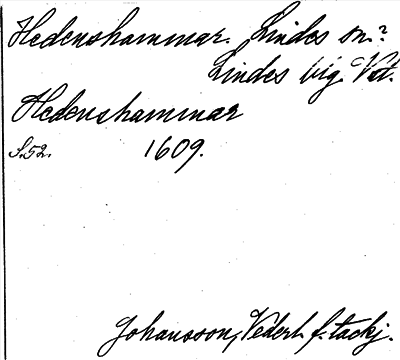 Hedenshammar. Lindes sn.?
Lindes bg. Vstm.
Hedenshammar
S.52. 1609.
Johansson, Vederl. f. tackj.